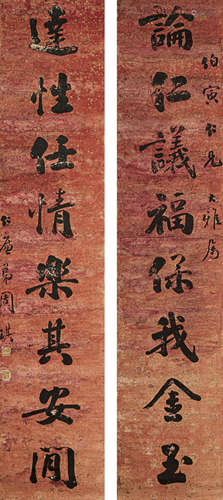 論仁議福保我金玉
伯寅仁兄大雅屬
達性任情樂其安閒
弟周